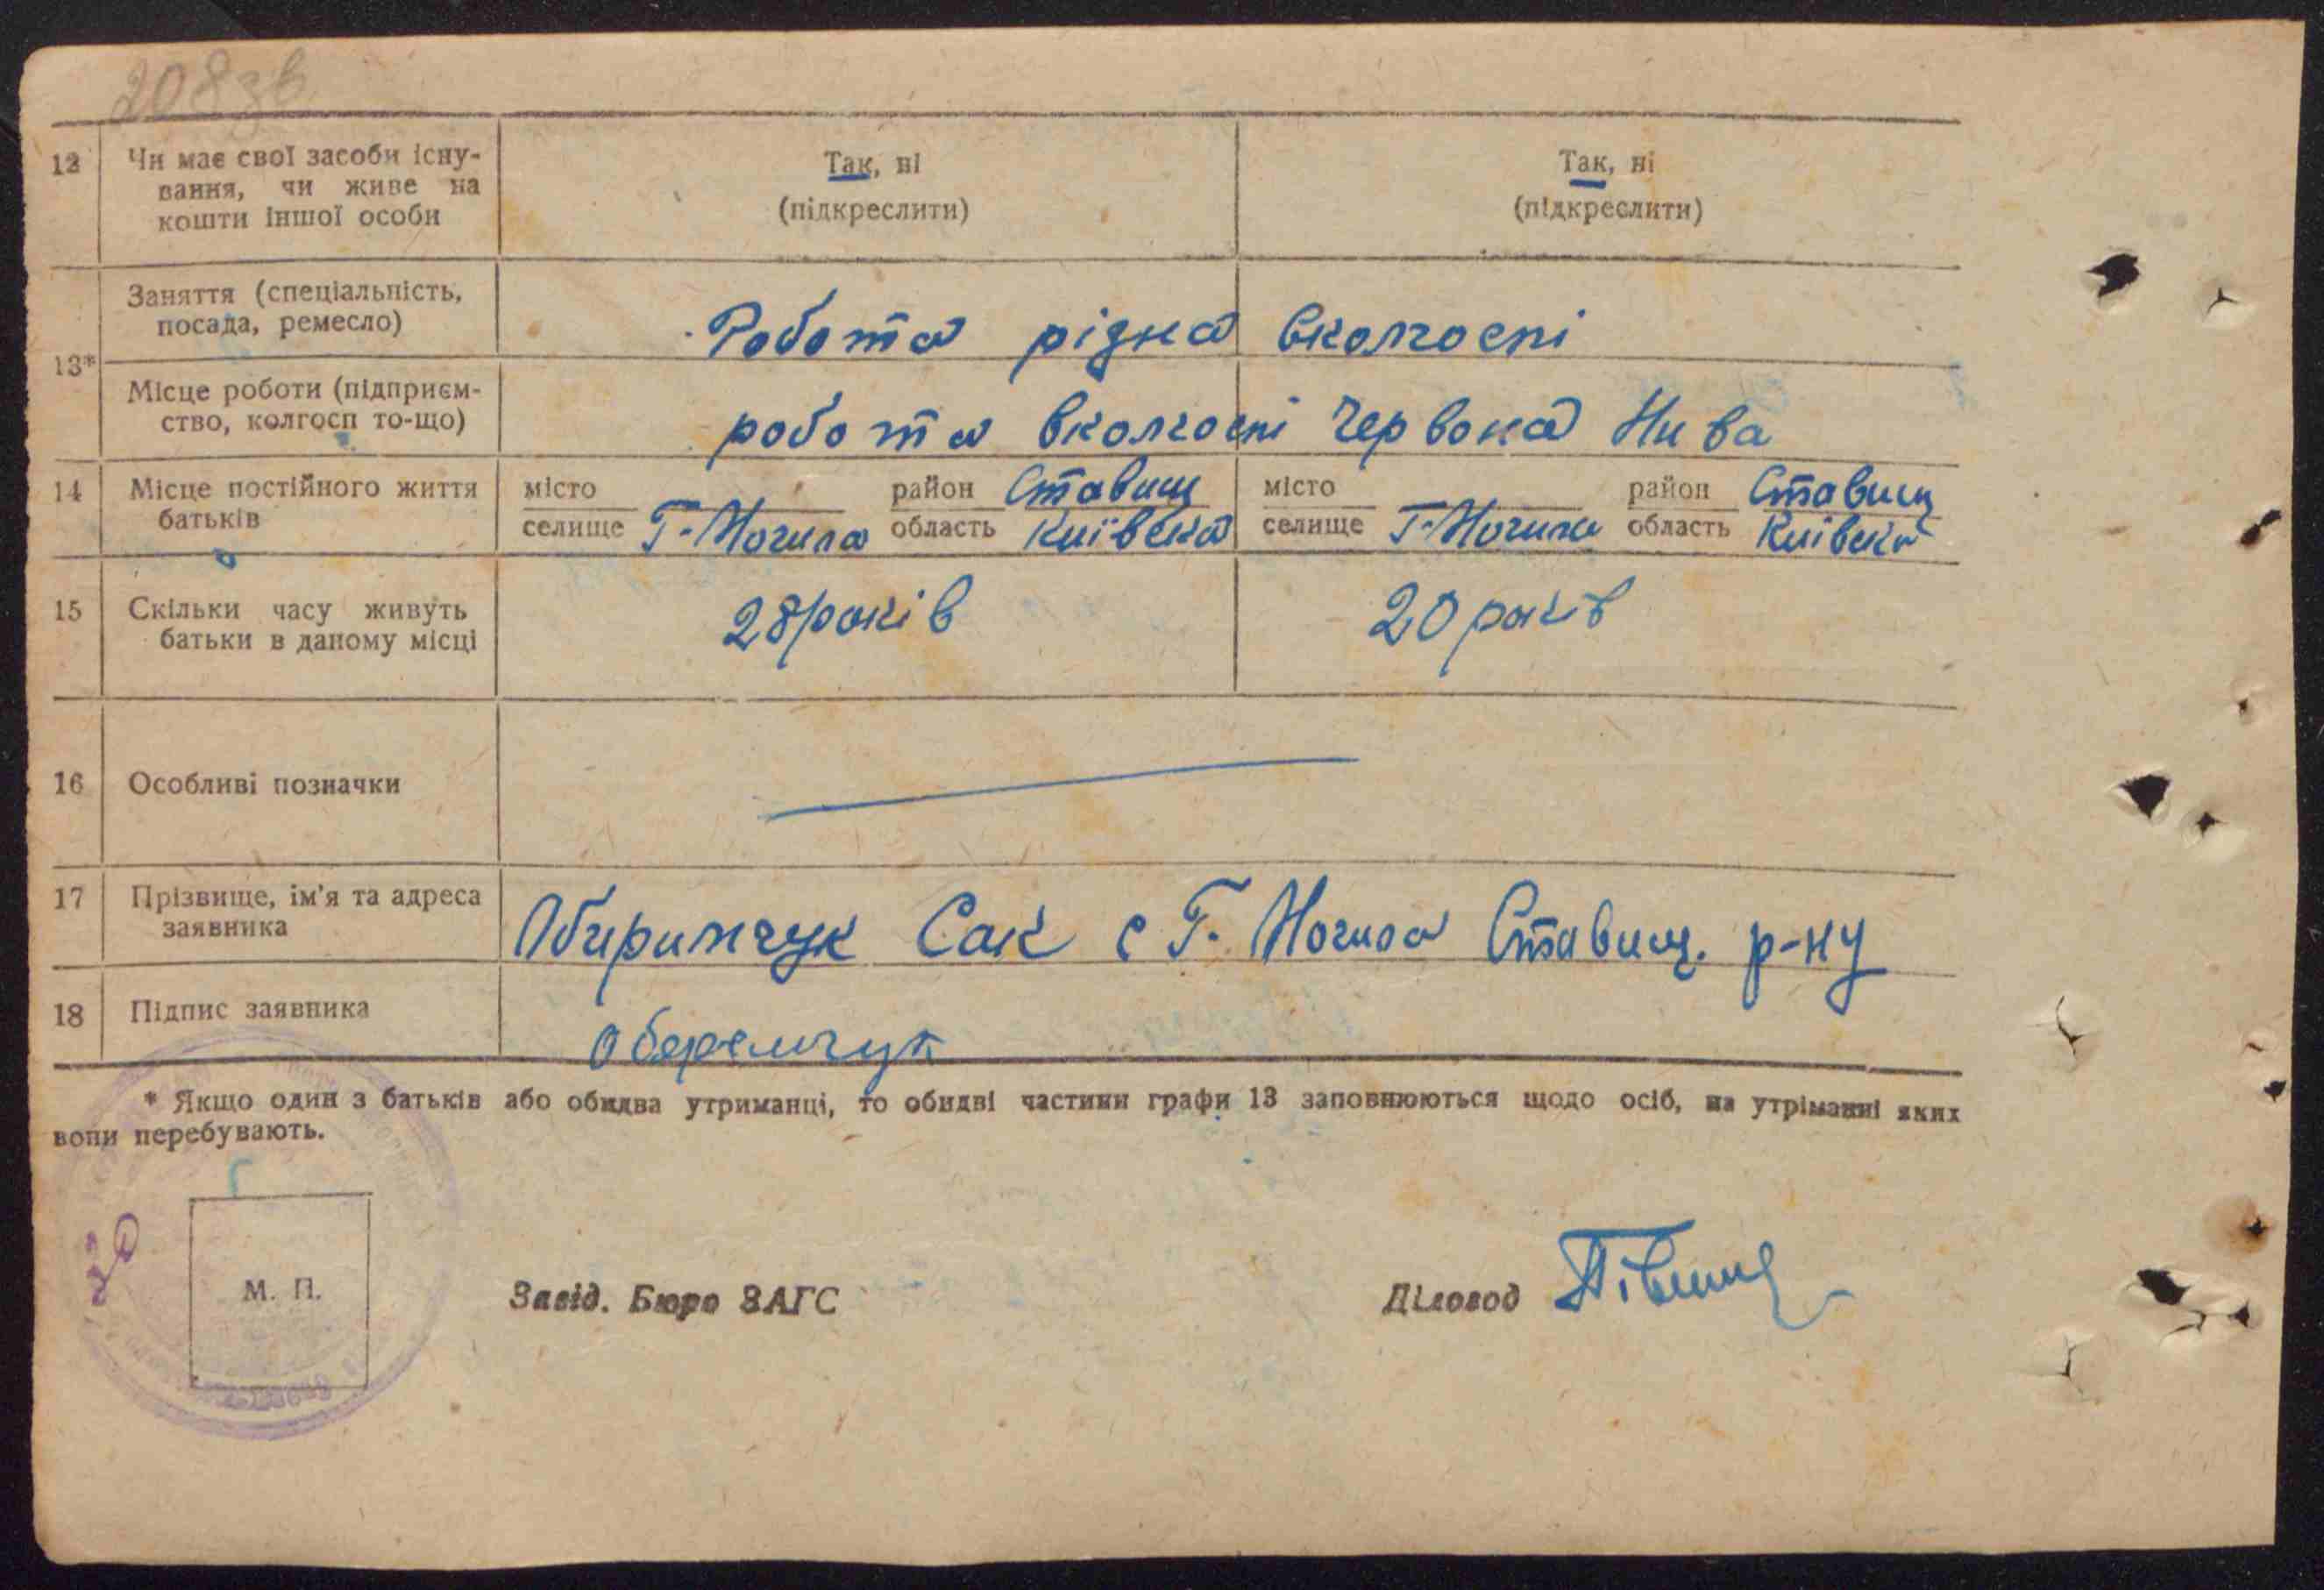 208зв
12 Чи має свої засоби існу-
вання, чи живе на
кошти іншої особи
Так, ні
(підкреслити)
Так, ні
(підкреслити)
13*
Заняття (спеціальність,
посада, ремесло)
Робота різна вколгоспі
Місце роботи (підприєм-
ство, колгосп то-що)
робота вколгоспі Червона Нива
14 Місце постійного життя
батьків
місто район Ставищ
селище Г-Могила область Київська
місто район Ставищ
селище Г-Могила область Київська
15 Скільки часу живуть
батьки в даному місці
28 років
20 років
16 Особливі позначки
17 Прізвище, ім'я та адреса
заявника
Обиримчук Сак с Г. Могила Ставищ. р-ну
18 Підпис заявника
Оберемчук
* Якщо один з батьків або обидва утриманці, то обидві частини графи 13 заповнюються щодо осіб, на утріманні яких
вони перебувають.
М. П.
Завід. Бюро ЗАГС
Діловод